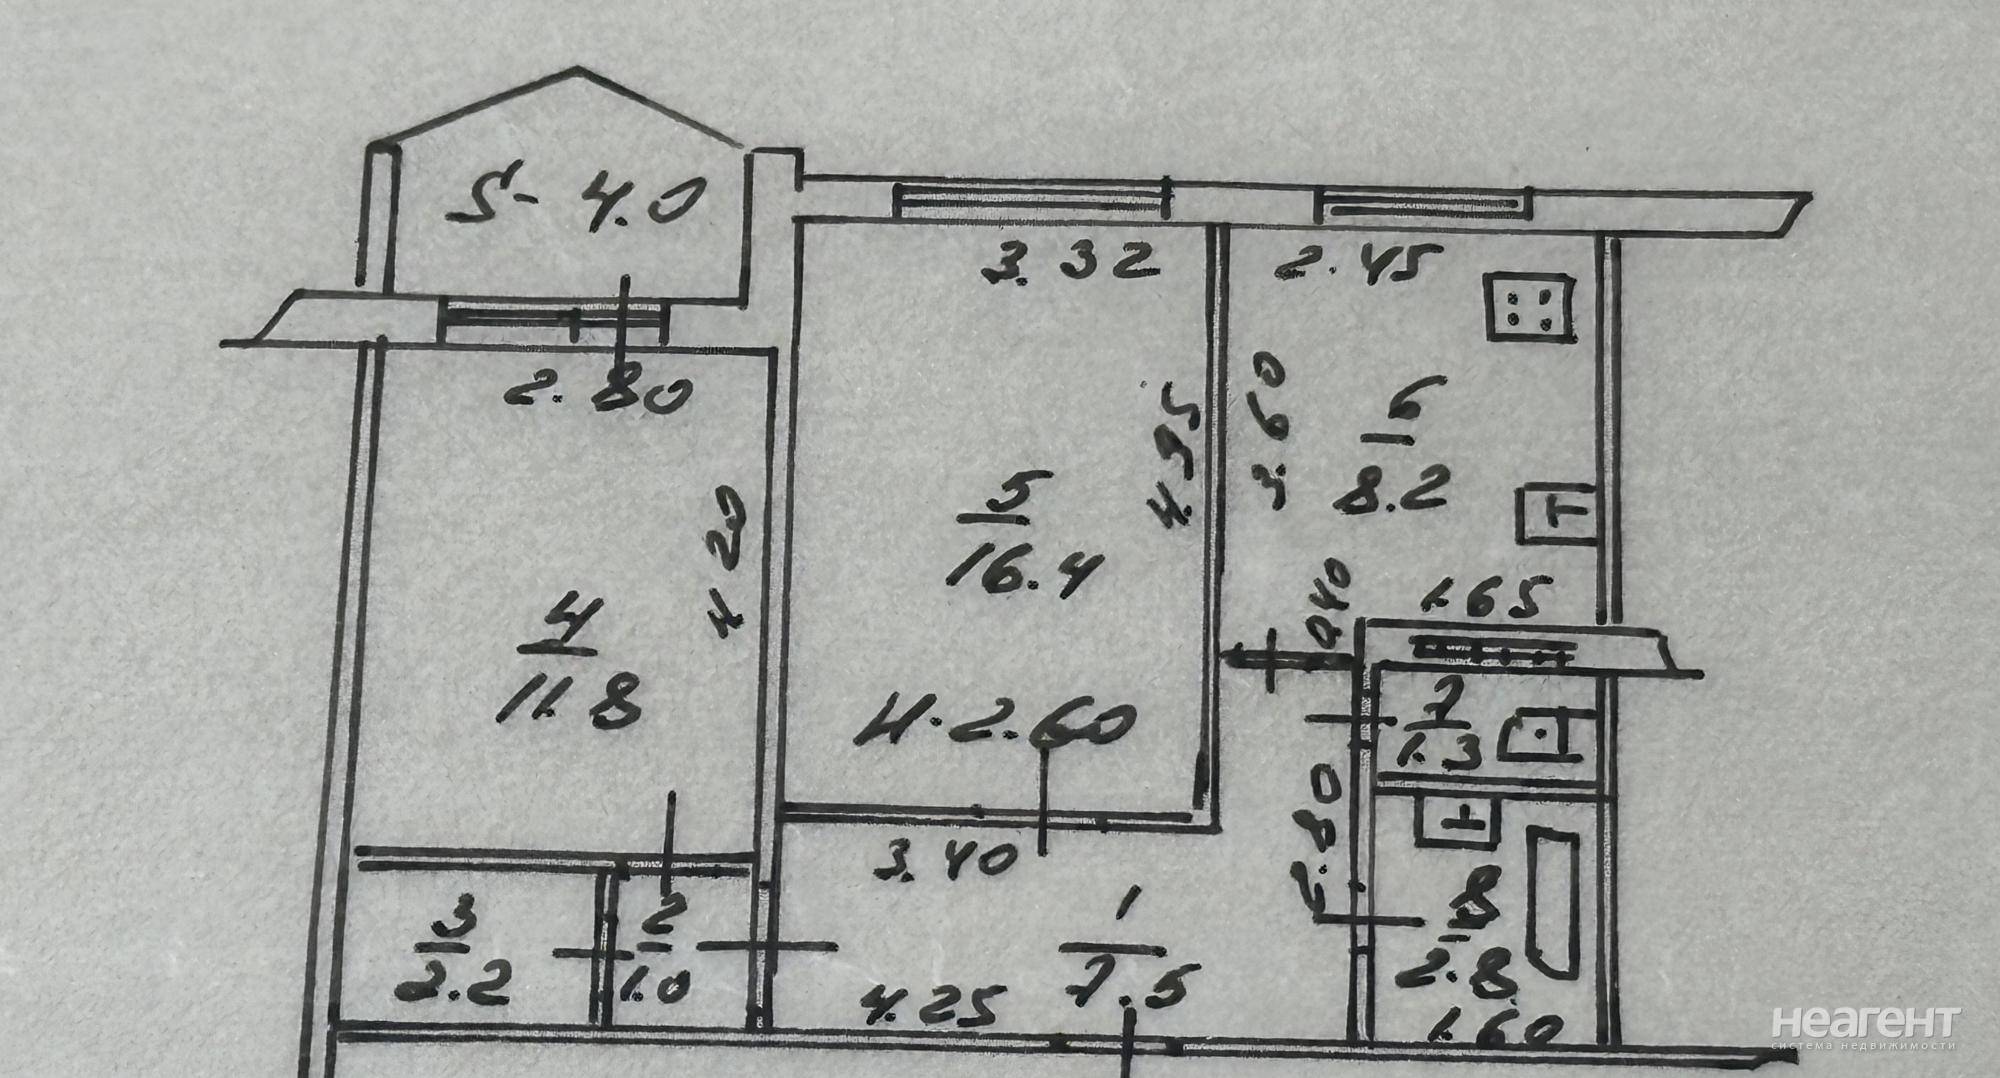 S- 4.0
3.32
2.45
2.80
3.60
6
8.2
4.95
4.20
5
16.4
0.40
1.65
4
11.8
H-2.60
7
1.3
2.80
3.40
1
7.5
8
2.8
3
2.2
2
1.0
4.25
1.60
неагент
система недвижимости